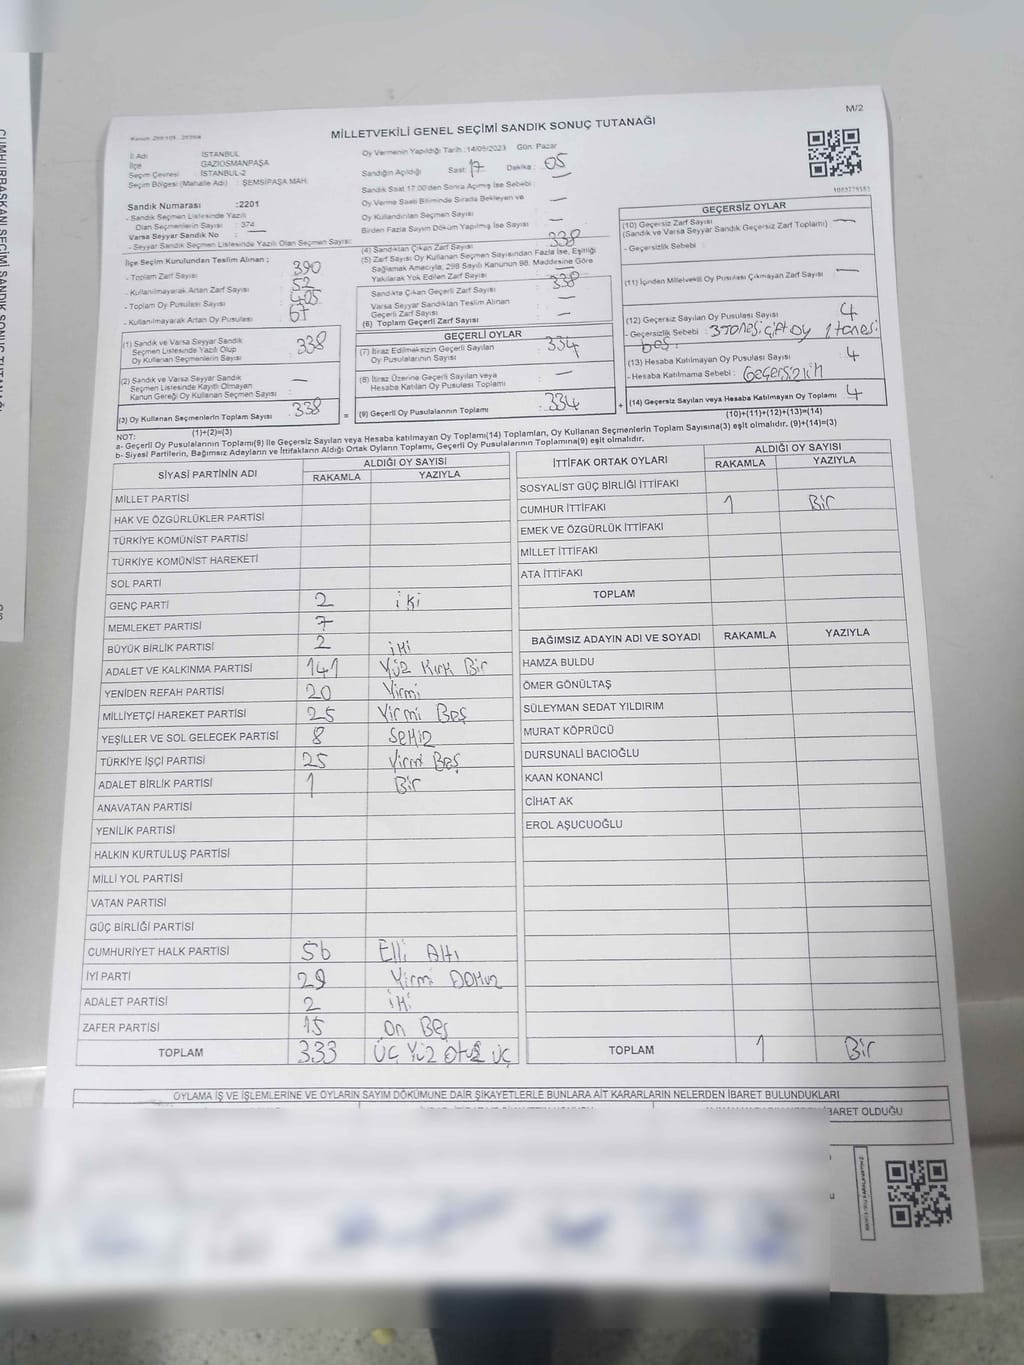 M/2
MİLLETVEKİLİ GENEL SEÇİMİ SANDIK SONUÇ TUTANAĞI
İl Adı : İSTANBUL
İlçe : GAZİOSMANPAŞA
Seçim Çevresi : İSTANBUL-2
Seçim Bölgesi (Mahalle Adı) : ŞEMSİPAŞA MAH.
Sandık Numarası :2201
- Sandık Seçmen Listesinde Yazılı
Olan Seçmenlerin Sayısı : 374
Varsa Seyyar Sandık No : —
- Seyyar Sandık Seçmen Listesinde Yazılı Olan Seçmen Sayısı:
İlçe Seçim Kurulundan Teslim Alınan ;
- Toplam Zarf Sayısı 390
- Kullanılmayarak Artan Zarf Sayısı 52
- Toplam Oy Pusulası Sayısı 405
- Kullanılmayarak Artan Oy Pusulası 67
(1) Sandık ve Varsa Seyyar Sandık
Seçmen Listesinde Yazılı Olup
Oy Kullanan Seçmenlerin Sayısı 338
(2) Sandık ve Varsa Seyyar Sandık
Seçmen Listesinde Kayıtlı Olmayan
Kanun Gereği Oy Kullanan Seçmen Sayısı —
(3) Oy Kullanan Seçmenlerin Toplam Sayısı 338
(1)+(2)=(3)
Oy Vermenin Yapıldığı Tarih :14/05/2023 Gün: Pazar
Sandığın Açıldığı Saat: 17 Dakika : 05
Sandık Saat 17.00'den Sonra Açılmış İse Sebebi:
Oy Verme Saati Bitiminde Sırada Bekleyen ve
Oy Kullandırılan Seçmen Sayısı —
Birden Fazla Sayım Döküm Yapılmış İse Sayısı —
(4) Sandıktan Çıkan Zarf Sayısı 338
(5) Zarf Sayısı Oy Kullanan Seçmen Sayısından Fazla İse, Eşitliği
Sağlamak Amacıyla; 298 Sayılı Kanunun 98. Maddesine Göre
Yakılarak Yok Edilen Zarf Sayısı —
Sandıkta Çıkan Geçerli Zarf Sayısı 338
Varsa Seyyar Sandıktan Teslim Alınan
Geçerli Zarf Sayısı —
(6) Toplam Geçerli Zarf Sayısı —
GEÇERLİ OYLAR
(7) İtiraz Edilmeksizin Geçerli Sayılan
Oy Pusulalarının Sayısı 334
(8) İtiraz Üzerine Geçerli Sayılan veya
Hesaba Katılan Oy Pusulası Toplamı —
= (9) Geçerli Oy Pusulalarının Toplamı : 334
1083778583
GEÇERSİZ OYLAR
(10) Geçersiz Zarf Sayısı
(Sandık ve Varsa Seyyar Sandık Geçersiz Zarf Toplamı) : —
- Geçersizlik Sebebi
(11) İçinden Milletvekili Oy Pusulası Çıkmayan Zarf Sayısı —
(12) Geçersiz Sayılan Oy Pusulası Sayısı 4
- Geçersizlik Sebebi : 3 Tanesi çift oy 1 tanesi
boş.
(13) Hesaba Katılmayan Oy Pusulası Sayısı 4
- Hesaba Katılmama Sebebi :
+ (14) Geçersiz Sayılan veya Hesaba Katılmayan Oy Toplamı 4
(10)+(11)+(12)+(13)=(14)
NOT:
a- Geçerli Oy Pusulalarının Toplamı(9) ile Geçersiz Sayılan veya Hesaba katılmayan Oy Toplamı(14) Toplamları, Oy Kullanan Seçmenlerin Toplam Sayısına(3) eşit olmalıdır. (9)+(14)=(3)
b- Siyasi Partilerin, Bağımsız Adayların ve İttifakların Aldığı Ortak Oyların Toplamı, Geçerli Oy Pusulalarının Toplamına(9) eşit olmalıdır.
SİYASİ PARTİNİN ADI ALDIĞI OY SAYISI
RAKAMLA YAZIYLA
MİLLET PARTİSİ
HAK VE ÖZGÜRLÜKLER PARTİSİ
TÜRKİYE KOMÜNİST PARTİSİ
TÜRKİYE KOMÜNİST HAREKETİ
SOL PARTİ
GENÇ PARTİ 2 iki
MEMLEKET PARTİSİ 7
BÜYÜK BİRLİK PARTİSİ 2 iki
ADALET VE KALKINMA PARTİSİ 141 Yüz Kırk Bir
YENİDEN REFAH PARTİSİ 20 Yirmi
MİLLİYETÇİ HAREKET PARTİSİ 25 Yirmi Beş
YEŞİLLER VE SOL GELECEK PARTİSİ 8 Sekiz
TÜRKİYE İŞÇİ PARTİSİ 25 Yirmi Beş
ADALET BİRLİK PARTİSİ 1 Bir
ANAVATAN PARTİSİ
YENİLİK PARTİSİ
HALKIN KURTULUŞ PARTİSİ
MİLLİ YOL PARTİSİ
VATAN PARTİSİ
GÜÇ BİRLİĞİ PARTİSİ
CUMHURİYET HALK PARTİSİ 56 Elli Altı
İYİ PARTİ 29 Yirmi Dokuz
ADALET PARTİSİ 2 iki
ZAFER PARTİSİ 15 On Beş
TOPLAM 333 Üç Yüz Otuz Üç
İTTİFAK ORTAK OYLARI ALDIĞI OY SAYISI
RAKAMLA YAZIYLA
SOSYALİST GÜÇ BİRLİĞİ İTTİFAKI
CUMHUR İTTİFAKI 1 Bir
EMEK VE ÖZGÜRLÜK İTTİFAKI
MİLLET İTTİFAKI
ATA İTTİFAKI
TOPLAM
BAĞIMSIZ ADAYIN ADI VE SOYADI RAKAMLA YAZIYLA
HAMZA BULDU
ÖMER GÖNÜLTAŞ
SÜLEYMAN SEDAT YILDIRIM
MURAT KÖPRÜCÜ
DURSUNALİ BACIOĞLU
KAAN KONANCİ
CİHAT AK
EROL AŞUCUOĞLU
TOPLAM 1 Bir
OYLAMA İŞ VE İŞLEMLERİNE VE OYLARIN SAYIM DÖKÜMÜNE DAİR ŞİKAYETLERLE BUNLARA AİT KARARLARIN NELERDEN İBARET BULUNDUKLARI
İBARET OLDUĞU
CUMHURBAŞKANI SEÇİMİ SANDIK SONUÇ TUTANAĞI